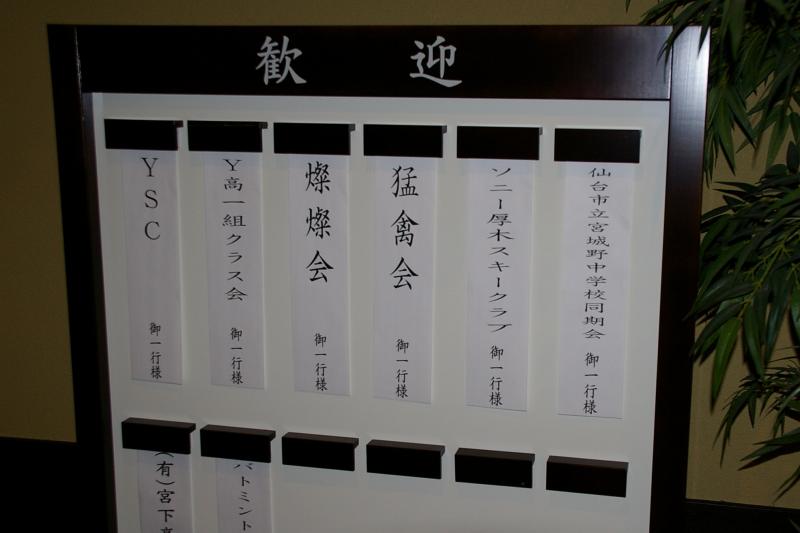 歓迎
仙台市立宮城野中学校同期会 御一行様
ソニー厚木スキークラブ 御一行様
猛禽会 御一行様
燦燦会 御一行様
Y高一組クラス会 御一行様
YSC 御一行様
バトミント
(有)宮下